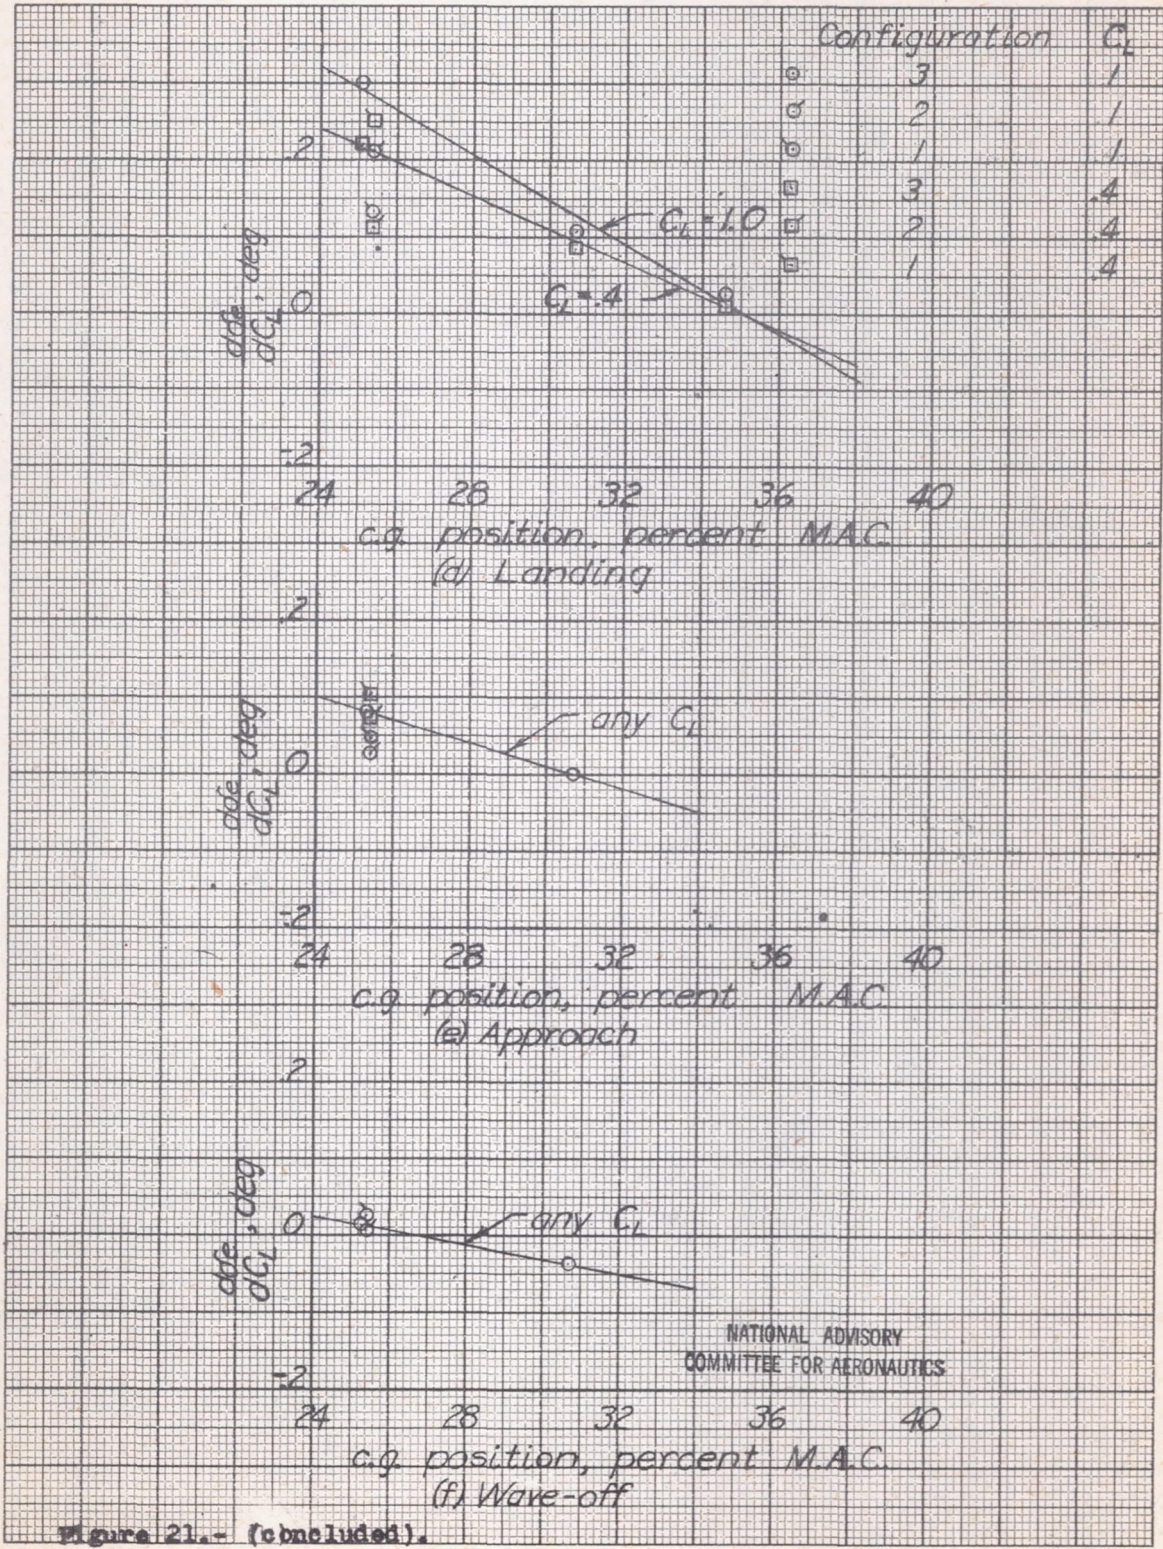 Configuration C_L
3 1
2 1
1 1
3 .4
2 .4
1 .4
.2
0
-.2
dδe/dC_L, deg
C_L = 1.0
C_L = .4
24 28 32 36 40
c.g. position, percent M.A.C.
(d) Landing
.2
0
-.2
dδe/dC_L, deg
any C_L
24 28 32 36 40
c.g. position, percent M.A.C.
(e) Approach
.2
0
-.2
dδe/dC_L, deg
any C_L
NATIONAL ADVISORY
COMMITTEE FOR AERONAUTICS
24 28 32 36 40
c.g. position, percent M.A.C.
(f) Wave-off
Figure 21.- (concluded).